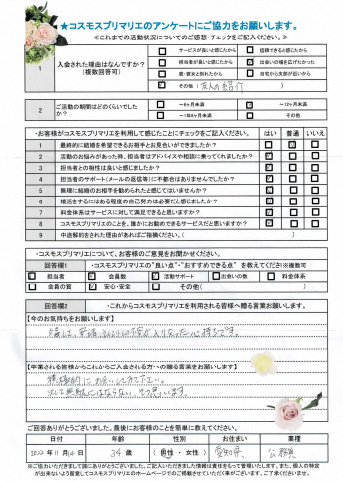 ★コスモスプリマリエのアンケートにご協力をお願いします。
≪これまでの活動状況についてのご感想・チェックをご記入ください。≫
1 入会された理由はなんですか?
(複数回答可)
サービスが良いと感じたから 信頼できると感じたから
担当者が良いと感じたから 出会いの場を広げたかった
彼・彼女と別れたから 自宅から支部が近いから
その他( 友人の紹介 )
2 ご活動の期間はどのくらいでしたか?
~6ヶ月未満 ~12ヶ月未満
~1年6ヶ月未満 その他( )
・お客様がコスモスプリマリエを利用して感じたことにチェックをご記入ください。 はい 普通 いいえ
1 最終的に結婚を希望できるお相手とお見合いができましたか?
2 活動のお悩みがあった時、担当者はアドバイスや相談に乗ってくれましたか?
3 担当者との相性は良いと感じましたか?
4 担当者のサポート(メールの返信等)に不都合はありませんでしたか?
5 無理に結婚のお相手を勧められたと感じてはいませんか?
6 婚活をするにはある程度の自己努力は必要だと感じましたか?
7 料金体系はサービスに対して満足できると思いますか?
8 コスモスプリマリエのことを、誰かにお勧めできるサービスだと思いますか?
9 中途解約をされた理由があればご指摘ください。( )
・コスモスプリマリエについて、お客様のご意見をお聞かせください。
回答欄1 ・コスモスプリマリエの"良い点"・"おすすめできる点" を教えてください※複数可
担当者 会員数 活動サポート 出会いの数 料金体系
会員の質 安心・安全 その他( )
回答欄2 ・これからコスモスプリマリエを利用される皆様へ贈る言葉お願いします。
【今のお気持ちをお願いします】
【卒業される皆様からこれからご入会される方への贈る言葉をお願いします】
積極的にお会いしてみて下さい。
決して無駄にはならないと思います。
ご回答ありがとうございました。最後にお客様のことを簡単に教えてください。
日付 年齢 性別 お住まい 業種
34歳 (男性・女性) 愛知県 公務員
※ご協力いただきまして誠にありがとうございました。ご記入いただきました情報は責任をもって管理いたします。また、個人の特定
が出来ないよう留意してコスモスプリマリエのホームページでのご掲載させていただく事がございます。ご了承くださいませ。